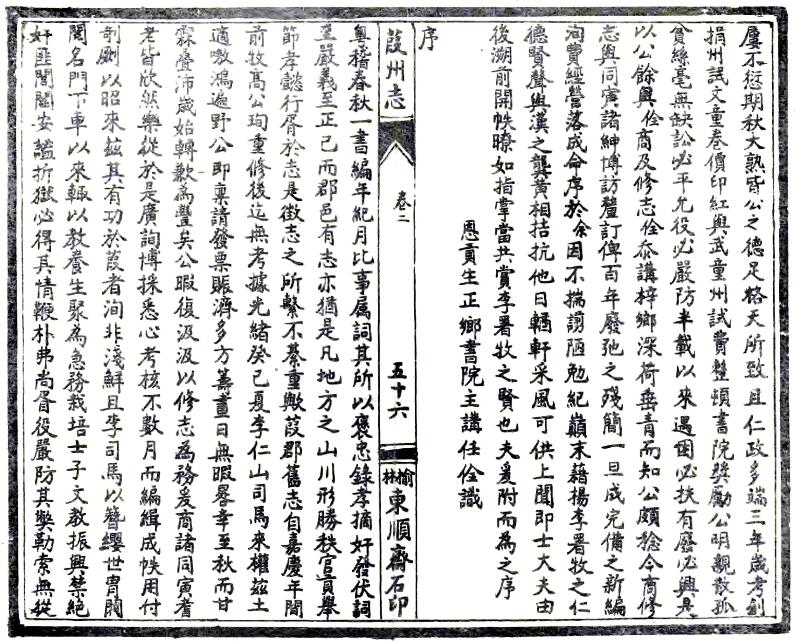 屢不愆期秋大熟咸公之德足格天所致且仁政多端三年歲考創
捐州試文童卷價印紅與武童州試費整頓書院獎勵公明親散孤
貧絲毫無缺訟必平允役必嚴防半載以來遇困必扶有廢必興是
以公餘與佺商及修志佺忝講梓鄉深荷垂青而知公頗稔今商修
志與同寅諸紳博訪釐訂俾百年廢弛之殘簡一旦成完備之新編
洵費經營落成命序於余因不揣謭陋勉紀巔末藉揚李署牧之仁
德賢聲與漢之龔黃相拮抗他日輶軒采風可供上聞即士大夫由
後溯前開帙瞭如指掌當共賞李署牧之賢也夫爰附而為之序
恩貢生正鄉書院主講任佺識
序
葭州志
卷二
五十六
榆林東順齋石印
粵稽春秋一書編年紀月比事屬詞其所以褒忠錄孝摘奸發伏詞
至嚴義至正已而郡邑有志亦猶是凡地方之山川形勝秩官貢舉
節孝懿行胥於志是徵志之所繫不綦重歟葭郡舊志自嘉慶年間
前牧高公珣重修後迄無考據光緒癸巳夏李仁山司馬來權茲土
適嗷鴻遍野公即稟請發票賑濟多方籌畫日無暇晷幸至秋而甘
霖疊沛歲始轉歉為豐矣公暇復汲汲以修志為務爰商諸同寅耆
老皆欣然樂從於是廣詢博採悉心考核不數月而編緝成帙用付
剞劂以昭來茲其有功於葭者洵非淺鮮且李司馬以簪纓世冑閥
閱名門下車以來輒以教養生聚為急務栽培士子文教振興禁絕
奸匪閭閻安謐折獄必得其情鞭朴弗尚胥役嚴防其弊勒索無從